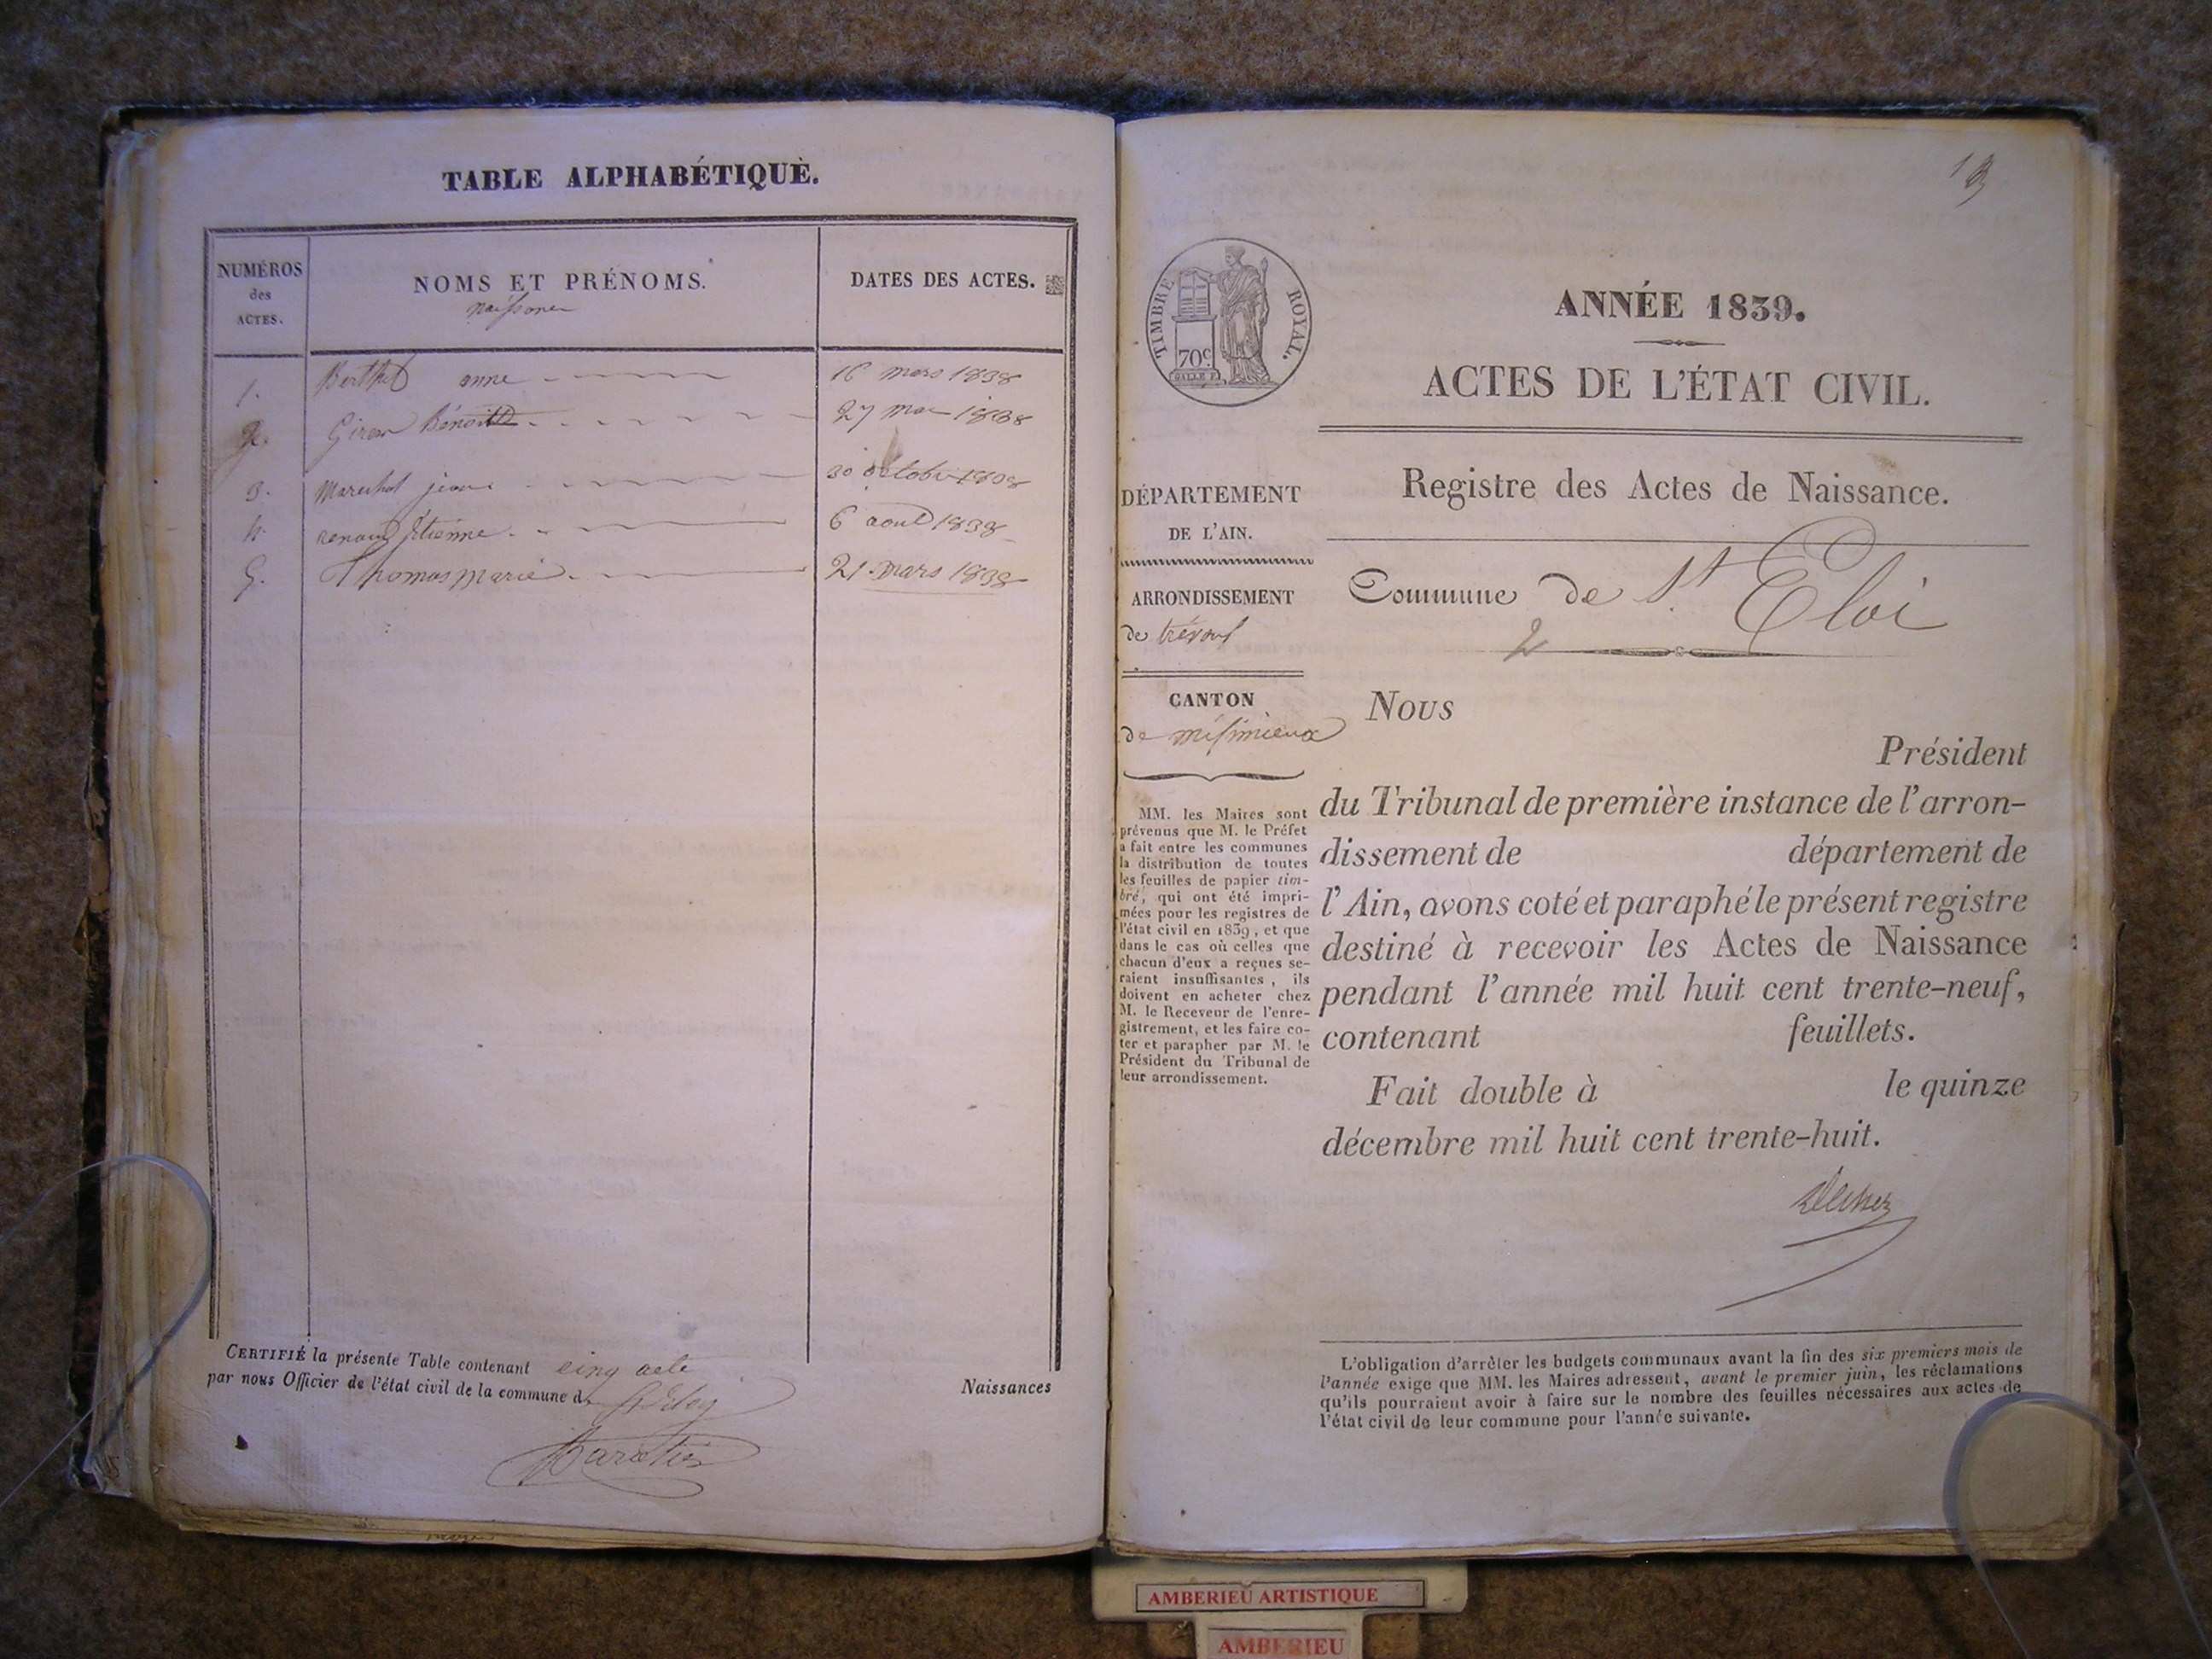 TABLE ALPHABÉTIQUE.
NUMÉROS
des
ACTES.
NOMS ET PRÉNOMS.
DATES DES ACTES.
1. Berthet anne 16 mars 1838
2. Benoitte 27 1838
3. Marechal 30 octobre
4. renaud Etienne 6 aout 1838
5. Thomas marie 21 mars 1838
CERTIFIÉ la présente Table contenant cinq acte
par nous Officier de l'état civil de la commune de St Eloy
Naissances
TIMBRE ROYAL.
70c
ANNÉE 1839.
ACTES DE L'ÉTAT CIVIL.
Registre des Actes de Naissance.
Commune de St Eloi
2
DÉPARTEMENT
DE L'AIN.
ARRONDISSEMENT
de trévoux
CANTON
de
MM. les Maires sont
prévenus que M. le Préfet
a fait entre les communes
la distribution de toutes
les feuilles de papier tim-
bré, qui ont été impri-
mées pour les registres de
l'état civil en 1839, et que
dans le cas où celles que
chacun d'eux a reçues se-
raient insuffisantes, ils
doivent en acheter chez
M. le Receveur de l'enre-
gistrement, et les faire co-
ter et parapher par M. le
Président du Tribunal de
leur arrondissement.
Nous
Président
du Tribunal de première instance de l'arron-
dissement de département de
l'Ain, avons coté et paraphé le présent registre
destiné à recevoir les Actes de Naissance
pendant l'année mil huit cent trente-neuf,
contenant feuillets.
Fait double à le quinze
décembre mil huit cent trente-huit.
L'obligation d'arrêter les budgets communaux avant la fin des six premiers mois de
l'année exige que MM. les Maires adressent, avant le premier juin, les réclamations
qu'ils pourraient avoir à faire sur le nombre des feuilles nécessaires aux actes de
l'état civil de leur commune pour l'année suivante.
AMBERIEU ARTISTIQUE
AMBERIEU